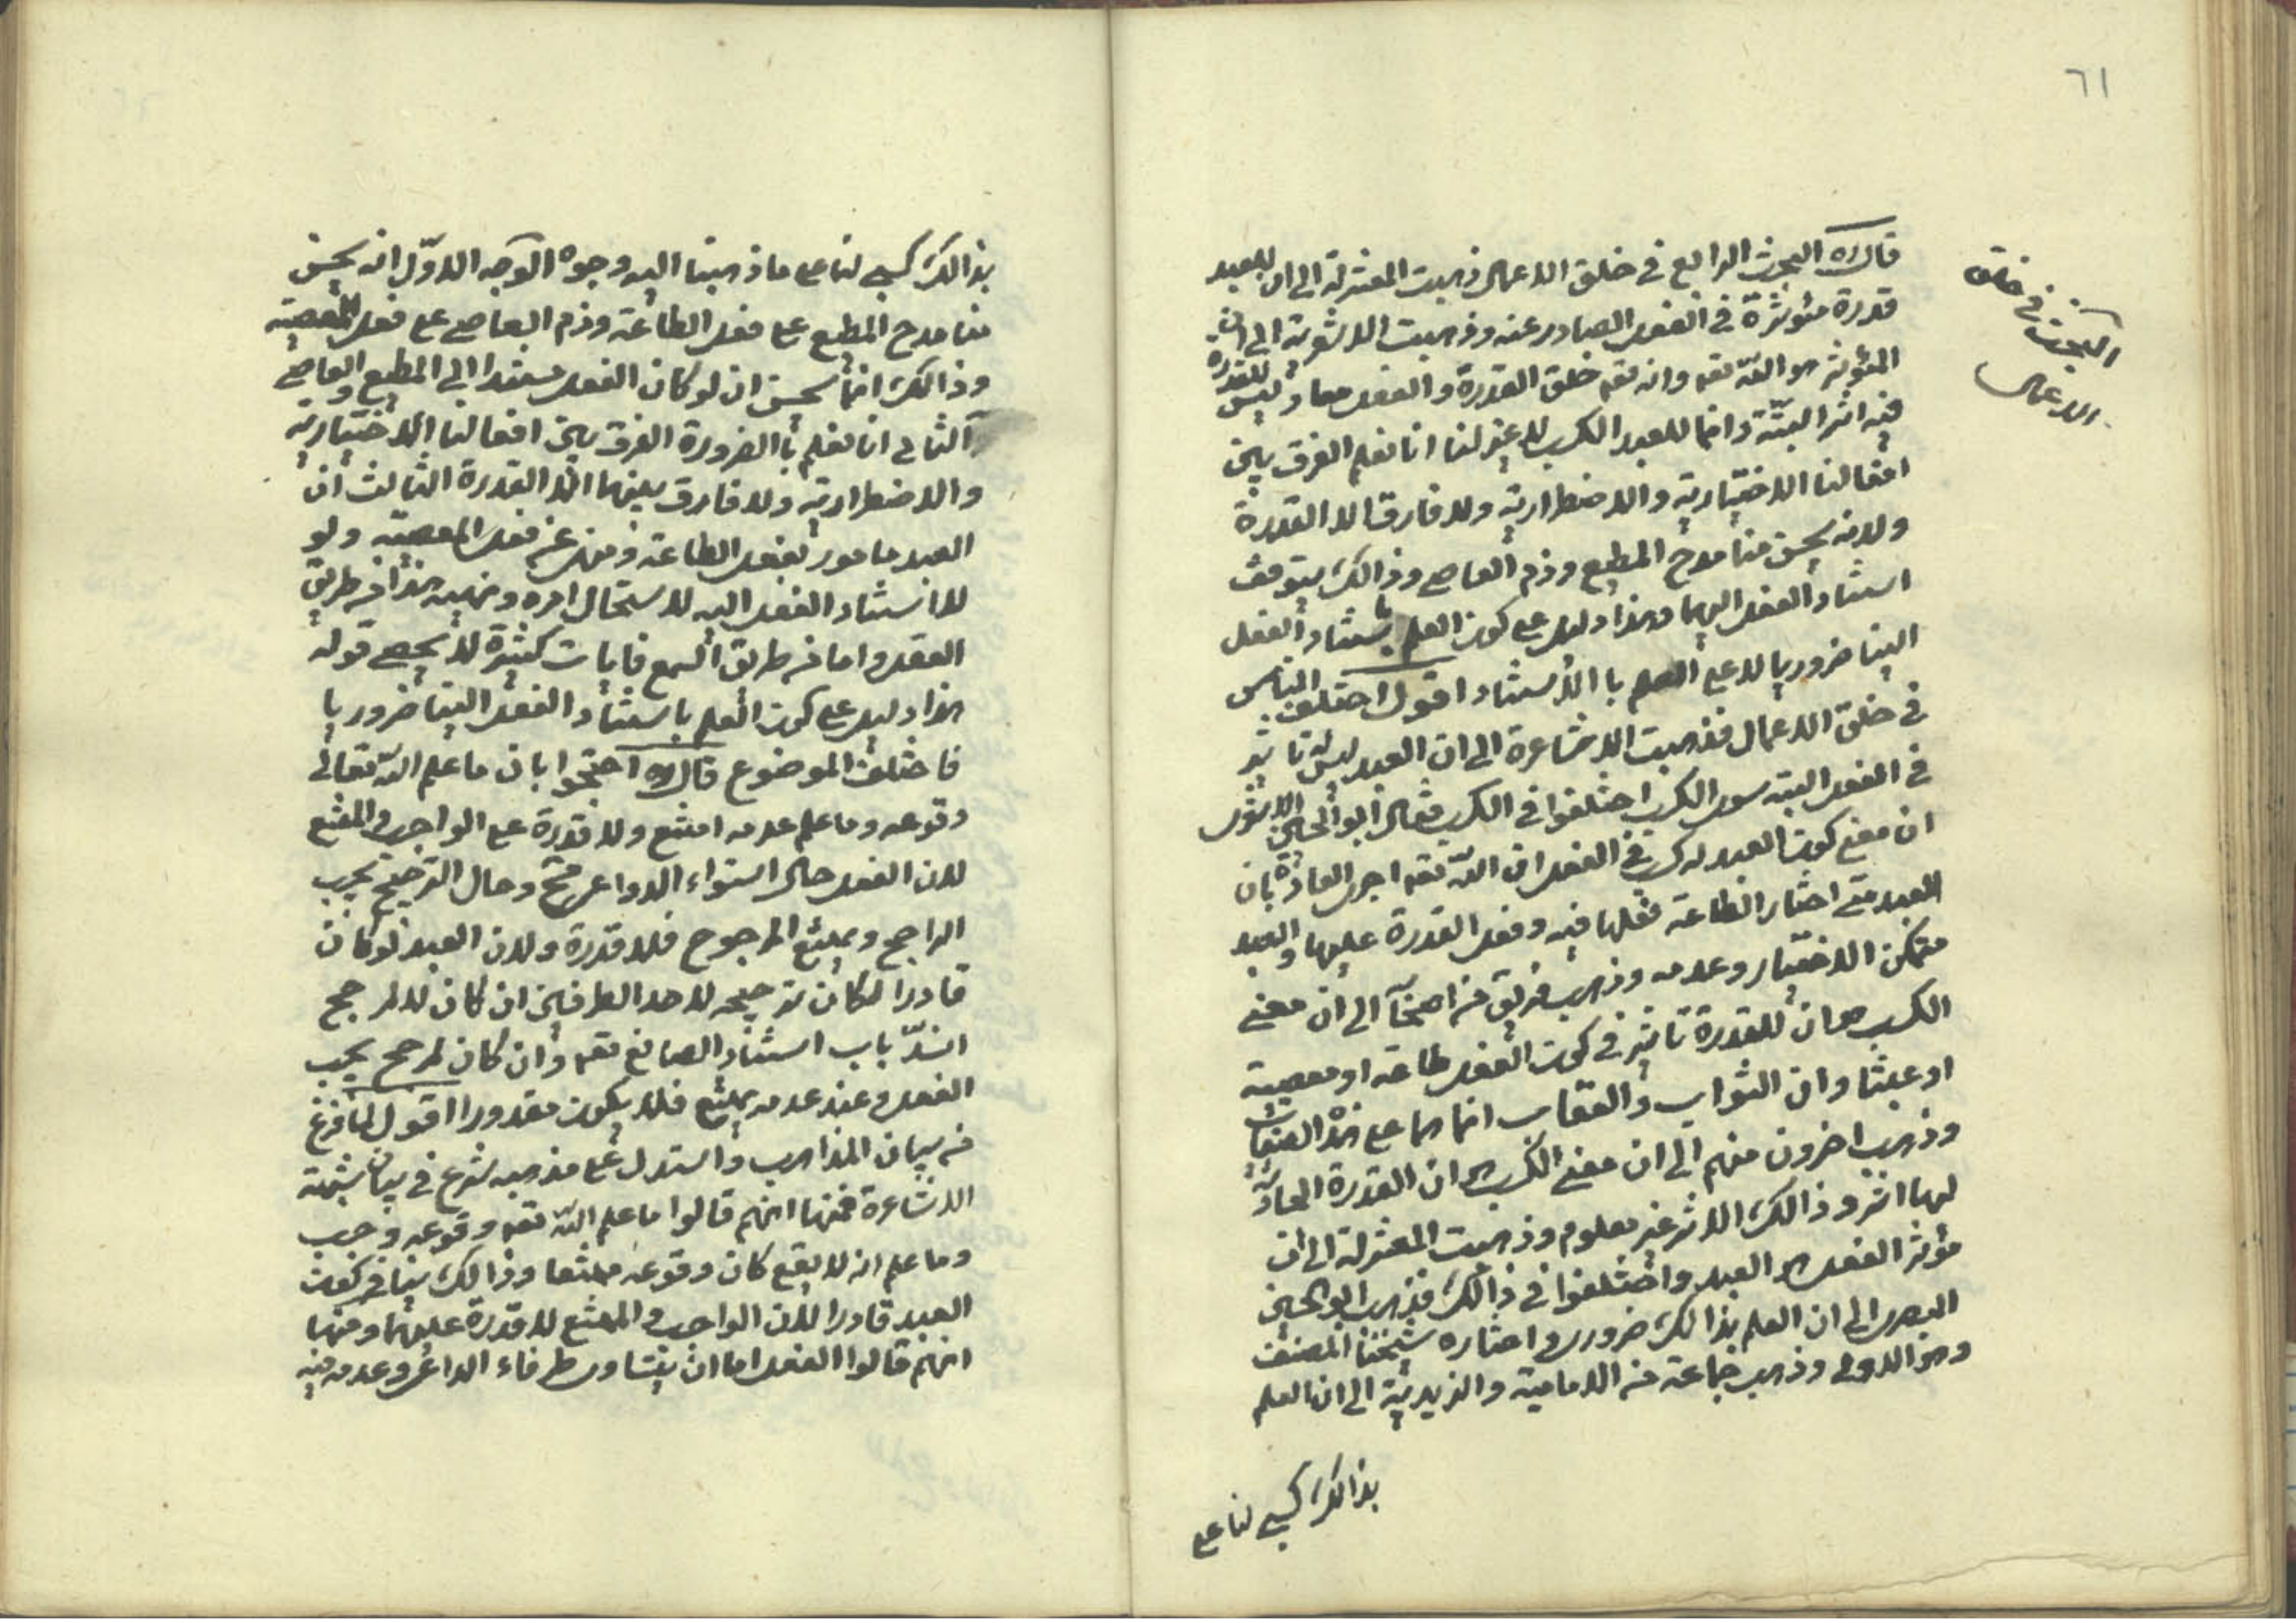 ٦١
البحث في خلق
الاعمال
قال ره البحث الرابع في خلق الاعمال ذهبت المعتزلة الى ان للعبد
قدرة مؤثرة في الفعل الصادر عنه وذهبت الاشعرية الى ان
المؤثر هو الله تعه وانه تعه خلق القدرة و الفعل معا وليس للقدرة
فيه اثر البتة وانما للعبد الكسب لا غير لنا انا نعلم الفرق بين
افعالنا الاختيارية والاضطرارية ولا فارق الا القدرة
ولانه يحسن منا مدح المطيع وذم العاصى وذالك يتوقف
استناد الفعل اليهما وهذا دليل على كون العلم باستناد الفعل
الينا ضروريا لا على العلم با الاستناد اقول اختلف الناس
في خلق الاعمال فذهبت الاشاعرة الى ان العبد ليس له تاثير
في الفعل البته سوى الكسب اختلفوا في الكسب فقال ابو الحسن الاشعرى
ان معنى كون العبد له كسب في الفعل ان الله تعه اجرى العادة بان
العبد متى اختار الطاعة فعلها فيه وفعل القدرة عليها والعبد
متمكن الاختيار وعدمه وذهب فريق من اصحابنا الى ان معنى
الكسب هو ان للقدرة تاثير في كون الفعل طاعة او معصية
او عبثا وان الثواب والعقاب انما هما على هذه الصفات
وذهب اخرون منهم الى ان معنى الكسب هو ان القدرة الحادثة
لها اثر وذالك الاثر غير معلوم وذهبت المعتزلة الى ان
مؤثر الفعل هو العبد واختلفوا في ذالك فذهب ابو الحسين
البصرى الى ان العلم بذالك ضرورى واختاره شيخنا المصنف
وهو الاولى وذهب جماعة من الامامية والزيدية الى ان العلم
بذالك كسبى لنا على
بذالك كسبى لنا على ما ذهبنا اليه وجوه الوجه الاوّل انه يحسن
منا مدح المطيع على فعل الطاعة وذم العاصى على فعل المعصية
وذالك انما يحسن ان لو كان الفعل مستندا الى المطيع والعاصى
الثانى انا نعلم با الضرورة الفرق بين افعالنا الاختيارية
والاضطرارية ولا فارق بينهما الا القدرة الثالث ان
العبد مامور بفعل الطاعة ومنهى عن فعل المعصية ولو
لا استناد الفعل اليه لاستحال امره ونهيه هذا من طريق
العقل واما من طريق السمع فايات كثيرة لا يحصى قوله
هذا دليل على كون العلم باستناد الفعل الينا ضروريا
فاختلف الموضوع قال ره احتجوا بان ما علم الله تعالى
وقوعه وما علم عدمه امتنع ولا قدرة على الواجب والممتنع
لان الفعل حال استواء الدواعى ممتنع وحال الترجيح يجب
الراجح ويمتنع المرجوح فلا قدرة ولان العبد لو كان
قادرا لكان ترجيحه لاحد الطرفين ان كان لا لمرجح
انسدّ باب استناد الصانع تعه وان كان لمرجح يجب
الفعل وعند عدمه يمتنع فلا يكون مقدورا اقول لما فرغ
من بيان المذاهب واستدل على مذهبه شرع في بيان شبهة
الاشاعرة فمنها انهم قالوا ما علم الله تعه وقوعه وجب
وما علم انه لا يقع كان وقوعه ممتنعا وذالك ينافى كون
العبد قادرا لان الواجب والممتنع لا قدرة عليهما ومنها
انهم قالوا الفعل اما ان يتساوى طرفاء الداعى وعدمه فيه